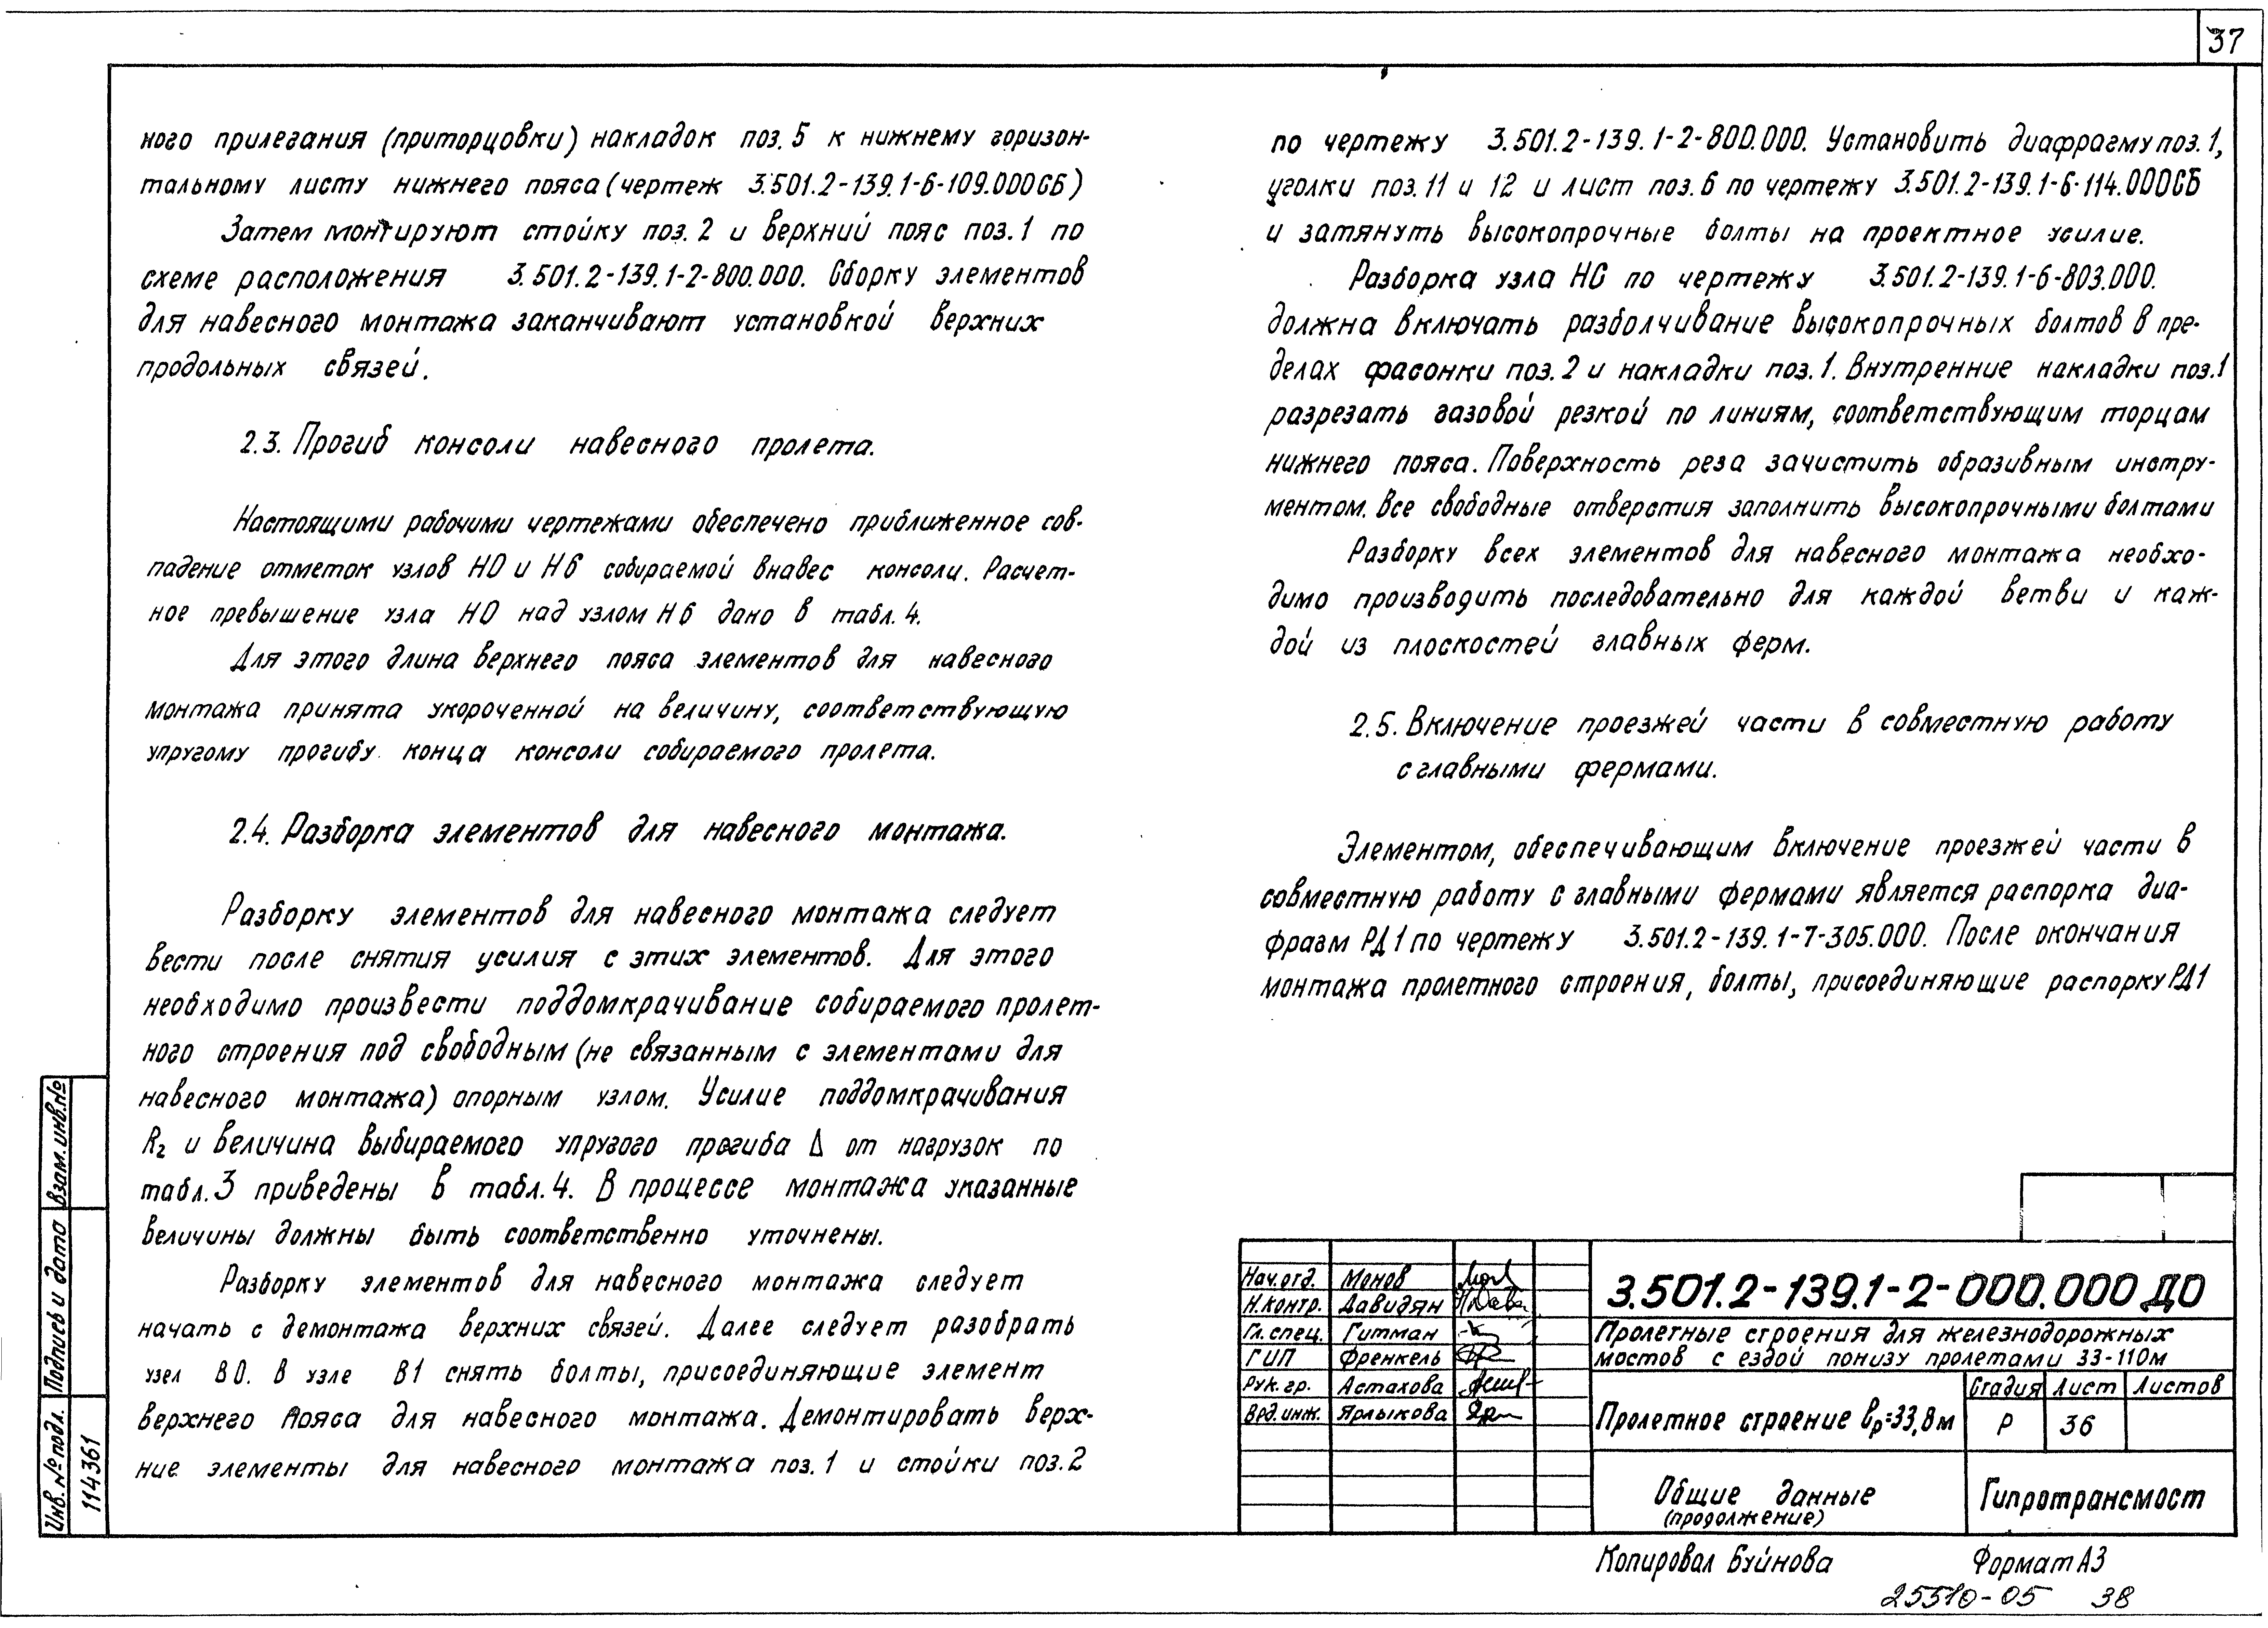 37
ного прилегания (приторцовки) накладок поз. 5 к нижнему горизон-
тальному листу нижнего пояса (чертеж 3.501.2-139.1-6-109.000СБ)
Затем монтируют стойку поз. 2 и верхний пояс поз. 1 по
схеме расположения 3.501.2-139.1-2-800.000. Сборку элементов
для навесного монтажа заканчивают установкой верхних
продольных связей.
2.3. Прогиб консоли навесного пролета.
Настоящими рабочими чертежами обеспечено приближенное сов-
падение отметок узлов Н0 и Н6 собираемой внавес консоли. Расчет-
ное превышение узла Н0 над узлом Н6 дано в табл. 4.
Для этого длина верхнего пояса элементов для навесного
монтажа принята укороченной на величину, соответствующую
упругому прогибу конца консоли собираемого пролета.
2.4. Разборка элементов для навесного монтажа.
Разборку элементов для навесного монтажа следует
вести после снятия усилия с этих элементов. Для этого
необходимо произвести поддомкрачивание собираемого пролет-
ного строения под свободным (не связанным с элементами для
навесного монтажа) опорным узлом. Усилие поддомкрачивания
R₂ и величина выбираемого упругого прогиба Δ от нагрузок по
табл. 3 приведены в табл. 4. В процессе монтажа указанные
величины должны быть соответственно уточнены.
Разборку элементов для навесного монтажа следует
начать с демонтажа верхних связей. Далее следует разобрать
узел В0. В узле В1 снять болты, присоединяющие элемент
верхнего пояса для навесного монтажа. Демонтировать верх-
ние элементы для навесного монтажа поз. 1 и стойки поз. 2
по чертежу 3.501.2-139.1-2-800.000. Установить диафрагму поз. 1,
уголки поз. 11 и 12 и лист поз. 6 по чертежу 3.501.2-139.1-6-114.000СБ
и затянуть высокопрочные болты на проектное усилие.
Разборка узла НС по чертежу 3.501.2-139.1-6-803.000.
должна включать разболчивание высокопрочных болтов в пре-
делах фасонки поз. 2 и накладки поз. 1. Внутренние накладки поз. 1
разрезать газовой резкой по линиям, соответствующим торцам
нижнего пояса. Поверхность реза зачистить образивным инстру-
ментом. Все свободные отверстия заполнить высокопрочными болтами
Разборку всех элементов для навесного монтажа необхо-
димо производить последовательно для каждой ветви и каж-
дой из плоскостей главных ферм.
2.5. Включение проезжей части в совместную работу
с главными фермами.
Элементом, обеспечивающим включение проезжей части в
совместную работу с главными фермами является распорка диа-
фрагм РД1 по чертежу 3.501.2-139.1-7-305.000. После окончания
монтажа пролетного строения, болты, присоединяющие распорку РД1
Взам. инв. №
Подпись и дата
Инв. № подл.
114361
Нач. отд. Монов
Н. контр. Давидян
Гл. спец. Гитман
ГИП Френкель
Рук. гр. Астахова
Врд. инж. Ярлыкова
3.501.2-139.1-2-000.000 ДО
Пролетные строения для железнодорожных
мостов с ездой понизу пролетами 33-110м
Пролетное строение ℓр=33,8м
Стадия Лист Листов
Р 36
Общие данные
(продолжение)
Гипротрансмост
Копировал Буйнова Формат А3
25510-05 38